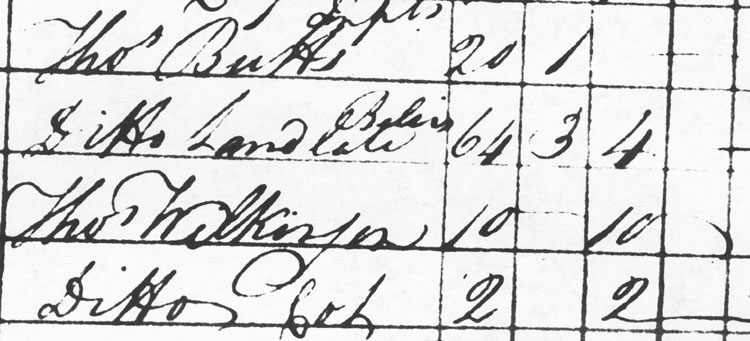 Thos Butts 20 1
Ditto Land late 64 3 4
Thos Wilkinson 10 10
Ditto 2 2